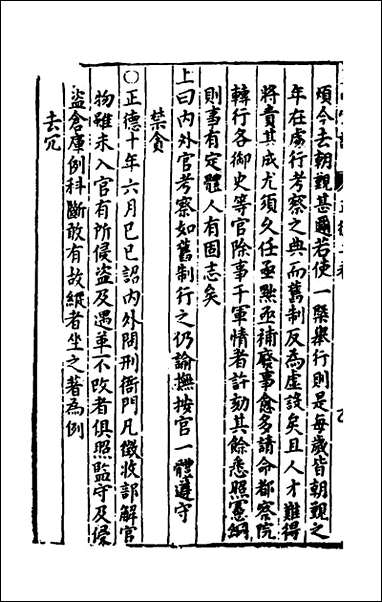 煩今去朝覲甚邇若使一槩舉行則是每歲皆朝覲之
年在處行考察之典而舊制反為虛設矣且人才難得
將責其成尤須久任亟黜亟補廢事愈多請命都察院
轉行各御史等官除事干軍情者許劾其餘悉照憲綱
則事有定體人有固志矣
上曰内外官考察如舊制行之仍諭撫按官一體遵守
禁貪
○正德十年六月己巳詔内外問刑衙門凡徵收部解官
物雖未入官有所侵盜及遇革不改者俱照監守及侵
盜倉庫例科斷敢有故縱者坐之著為例
去冗